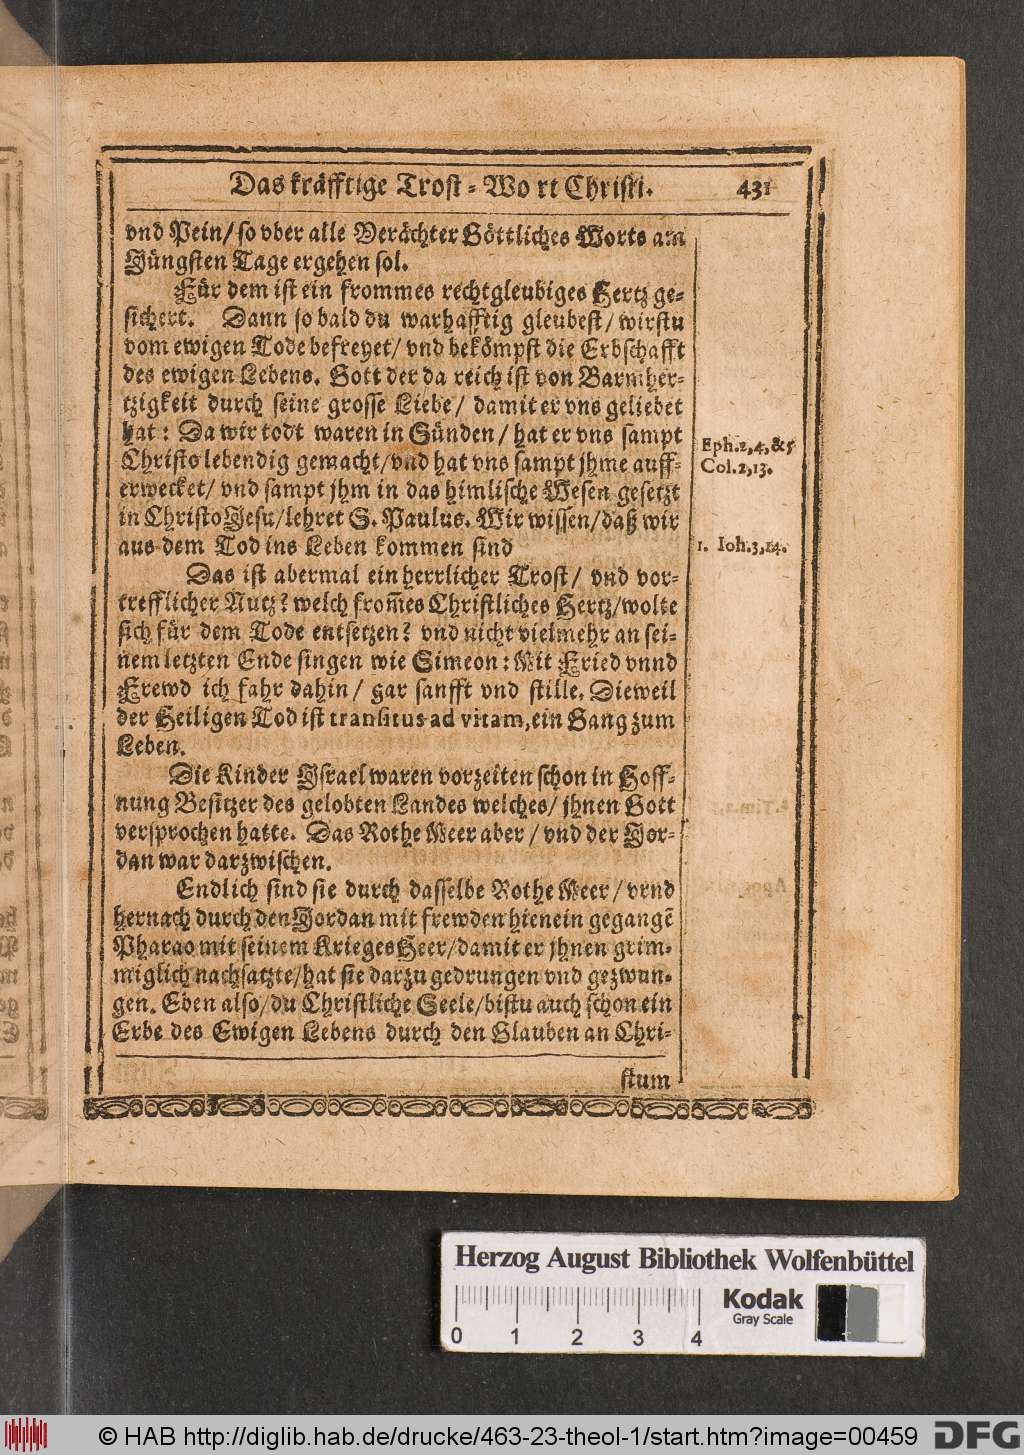 Das kräfftige Trost-Wort Christi. 431
vnd Pein/ so vber alle Verächter Göttliches Worts am
Jüngsten Tage ergehen sol.
Für dem ist ein frommes rechtgleubiges Hertz ge-
sichert. Dann so bald du warhafftig gleubest/ wirstu
vom ewigen Tode befreyet/ vnd bekömpst die Erbschafft
des ewigen Lebens. Gott der da reich ist von Barmher-
tzigkeit durch seine grosse Liebe/ damit er vns geliebet
hat: Da wir todt waren in Sünden/ hat er vns sampt
Christo lebendig gemacht/ vnd hat vns sampt jhme auff-
erwecket/ vnd sampt jhm in das himlische Wesen gesetzt
in Christo Jesu/ lehret S. Paulus. Wir wissen/ daß wir
aus dem Tod ins Leben kommen sind
Eph. 2, 4, & 5
Col. 2, 13.
1. Ioh. 3, 14.
Das ist abermal ein herrlicher Trost/ vnd vor-
trefflicher Nutz? welch from̃es Christliches Hertz/ wolte
sich für dem Tode entsetzen? vnd nicht vielmehr an sei-
nem letzten Ende singen wie Simeon: Mit Fried vnnd
Frewd ich fahr dahin/ gar sanfft vnd stille. Dieweil
der Heiligen Tod ist transitus ad vitam, ein Gang zum
Leben.
Die Kinder Jsrael waren vorzeiten schon in Hoff-
nung Besitzer des gelobten Landes welches/ jhnen Gott
versprochen hatte. Das Rothe Meer aber/ vnd der Jor-
dan war darzwischen.
Endlich sind sie durch dasselbe Rothe Meer/ vnnd
hernach durch den Jordan mit frewden hienein gegangẽ
Pharao mit seinem KriegesHeer/ damit er jhnen grim-
miglich nachsatzte/ hat sie darzu gedrungen vnd gezwun-
gen. Eben also/ du Christliche Seele/ bistu auch schon ein
Erbe des Ewigen Lebens durch den Glauben an Chri-
stum
Herzog August Bibliothek Wolfenbüttel
0 1 2 3 4
Kodak
Gray Scale
© HAB http://diglib.hab.de/drucke/463-23-theol-1/start.htm?image=00459
DFG